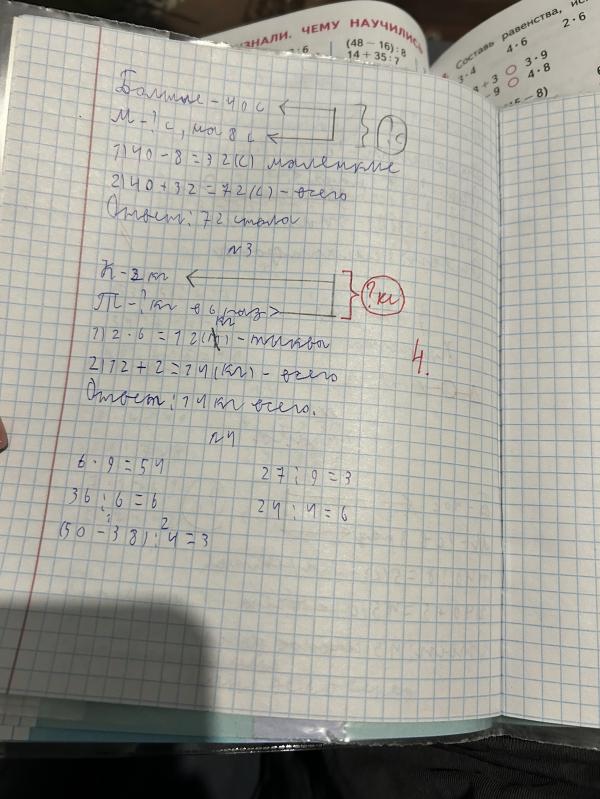 УЗНАЛИ. ЧЕМУ НАУЧИЛИСЬ
(48 − 16) : 8
14 + 35 : 7
Составь равенства, ис
3 · 4 4 · 6 2 · 6
3 · 9
4 · 8
Больше - 40 с
М - ? с, на 8 с
? с
1) 40 - 8 = 32 (с) маленькие
2) 40 + 32 = 72 (с) - всего
Ответ: 72 стола
№3
К - 2 кг
Т - ? кг в 6 раз >
? кг
1) 2 · 6 = 12 (кг) - тыквы
2) 12 + 2 = 14 (кг) - всего
Ответ: 14 кг всего.
4.
№4
6 · 9 = 54 27 : 9 = 3
36 : 6 = 6 24 : 4 = 6
(50 - 38) : 4 = 3